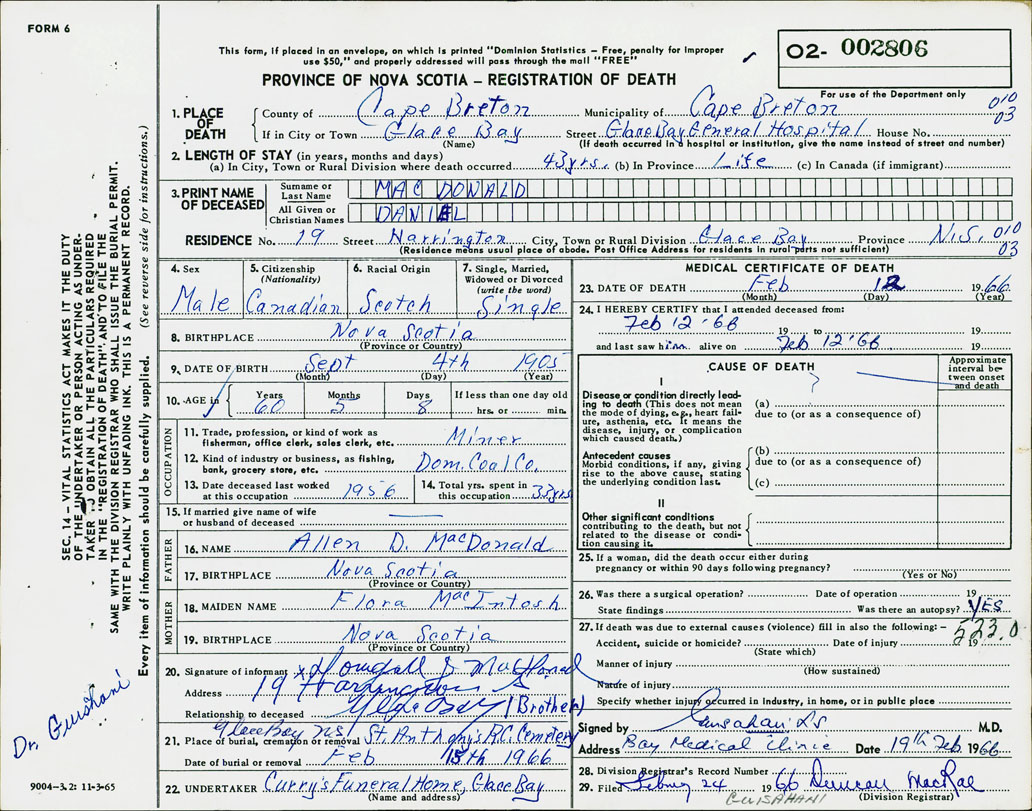 FORM 6
This form, if placed in an envelope, on which is printed "Dominion Statistics – Free, penalty for improper
use $50," and properly addressed will pass through the mail "FREE"
PROVINCE OF NOVA SCOTIA – REGISTRATION OF DEATH
02- 002806
For use of the Department only
010
03
1. PLACE OF DEATH
County of Cape Breton Municipality of Cape Breton
If in City or Town Glace Bay Street Glace Bay General Hospital House No.
(Name) (If death occurred in a hospital or institution, give the name instead of street and number)
2. LENGTH OF STAY (in years, months and days)
(a) In City, Town or Rural Division where death occurred 43 yrs. (b) In Province Life (c) In Canada (if immigrant)
3. PRINT NAME OF DECEASED
Surname or Last Name MAC DONALD
All Given or Christian Names DANIEL
RESIDENCE No. 19 Street Harrington City, Town or Rural Division Glace Bay Province N.S. 010
03
(Residence means usual place of abode. Post Office Address for residents in rural parts not sufficient)
4. Sex
Male
5. Citizenship
(Nationality)
Canadian
6. Racial Origin
Scotch
7. Single, Married,
Widowed or Divorced
(write the word)
Single
8. BIRTHPLACE Nova Scotia
(Province or Country)
9. DATE OF BIRTH Sept 4th 1905
(Month) (Day) (Year)
10. AGE in
Years Months Days If less than one day old
60 5 8 hrs. or min.
OCCUPATION
11. Trade, profession, or kind of work as
fisherman, office clerk, sales clerk, etc. Miner
12. Kind of industry or business, as fishing,
bank, grocery store, etc. Dom. Coal Co.
13. Date deceased last worked
at this occupation 1956
14. Total yrs. spent in
this occupation 33 yrs
15. If married give name of wife
or husband of deceased
FATHER
16. NAME Allen D. MacDonald
17. BIRTHPLACE Nova Scotia
(Province or Country)
MOTHER
18. MAIDEN NAME Flora MacIntosh
19. BIRTHPLACE Nova Scotia
(Province or Country)
20. Signature of informant x
Address 19 Harrington S
Relationship to deceased Glace Bay (Brother)
Glace Bay NS
21. Place of burial, cremation or removal St. Anthony's R.C. Cemetery
Date of burial or removal Feb 15th 1966
22. UNDERTAKER Curry's Funeral Home, Glace Bay
(Name and address)
MEDICAL CERTIFICATE OF DEATH
23. DATE OF DEATH Feb 12 1966
(Month) (Day) (Year)
24. I HEREBY CERTIFY that I attended deceased from:
Feb 12 '66 19 to 19
and last saw him alive on Feb 12 '66 19
CAUSE OF DEATH
Approximate interval between onset and death
I
Disease or condition directly leading to death (This does not mean the mode of dying, e.g., heart failure, asthenia, etc. It means the disease, injury, or complication which caused death.)
(a)
due to (or as a consequence of)
Antecedent causes
Morbid conditions, if any, giving rise to the above cause, stating the underlying condition last.
(b)
due to (or as a consequence of)
(c)
II
Other significant conditions
contributing to the death, but not related to the disease or condition causing it.
25. If a woman, did the death occur either during
pregnancy or within 90 days following pregnancy?
(Yes or No)
26. Was there a surgical operation? Date of operation 19
State findings Was there an autopsy? YES
27. If death was due to external causes (violence) fill in also the following: – 523.0
Accident, suicide or homicide? Date of injury 19
(State which)
Manner of injury
(How sustained)
Nature of injury
Specify whether injury occurred in industry, in home, or in public place
Signed by M.D.
Address Bay Medical Clinic Date 19th Feb 1966
28. Division Registrar's Record Number
29. Filed 24 1966 Duncan MacRae
(Division Registrar)
GUISAHANI
SEC. 14 – VITAL STATISTICS ACT MAKES IT THE DUTY
OF THE UNDERTAKER OR PERSON ACTING AS UNDER-
TAKER TO OBTAIN ALL THE PARTICULARS REQUIRED
IN THE "REGISTRATION OF DEATH" AND TO FILE THE
SAME WITH THE DIVISION REGISTRAR WHO SHALL ISSUE THE BURIAL PERMIT.
WRITE PLAINLY WITH UNFADING INK. THIS IS A PERMANENT RECORD.
Every item of information should be carefully supplied. (See reverse side for instructions.)
Dr.
9004-3.2: 11-3-65